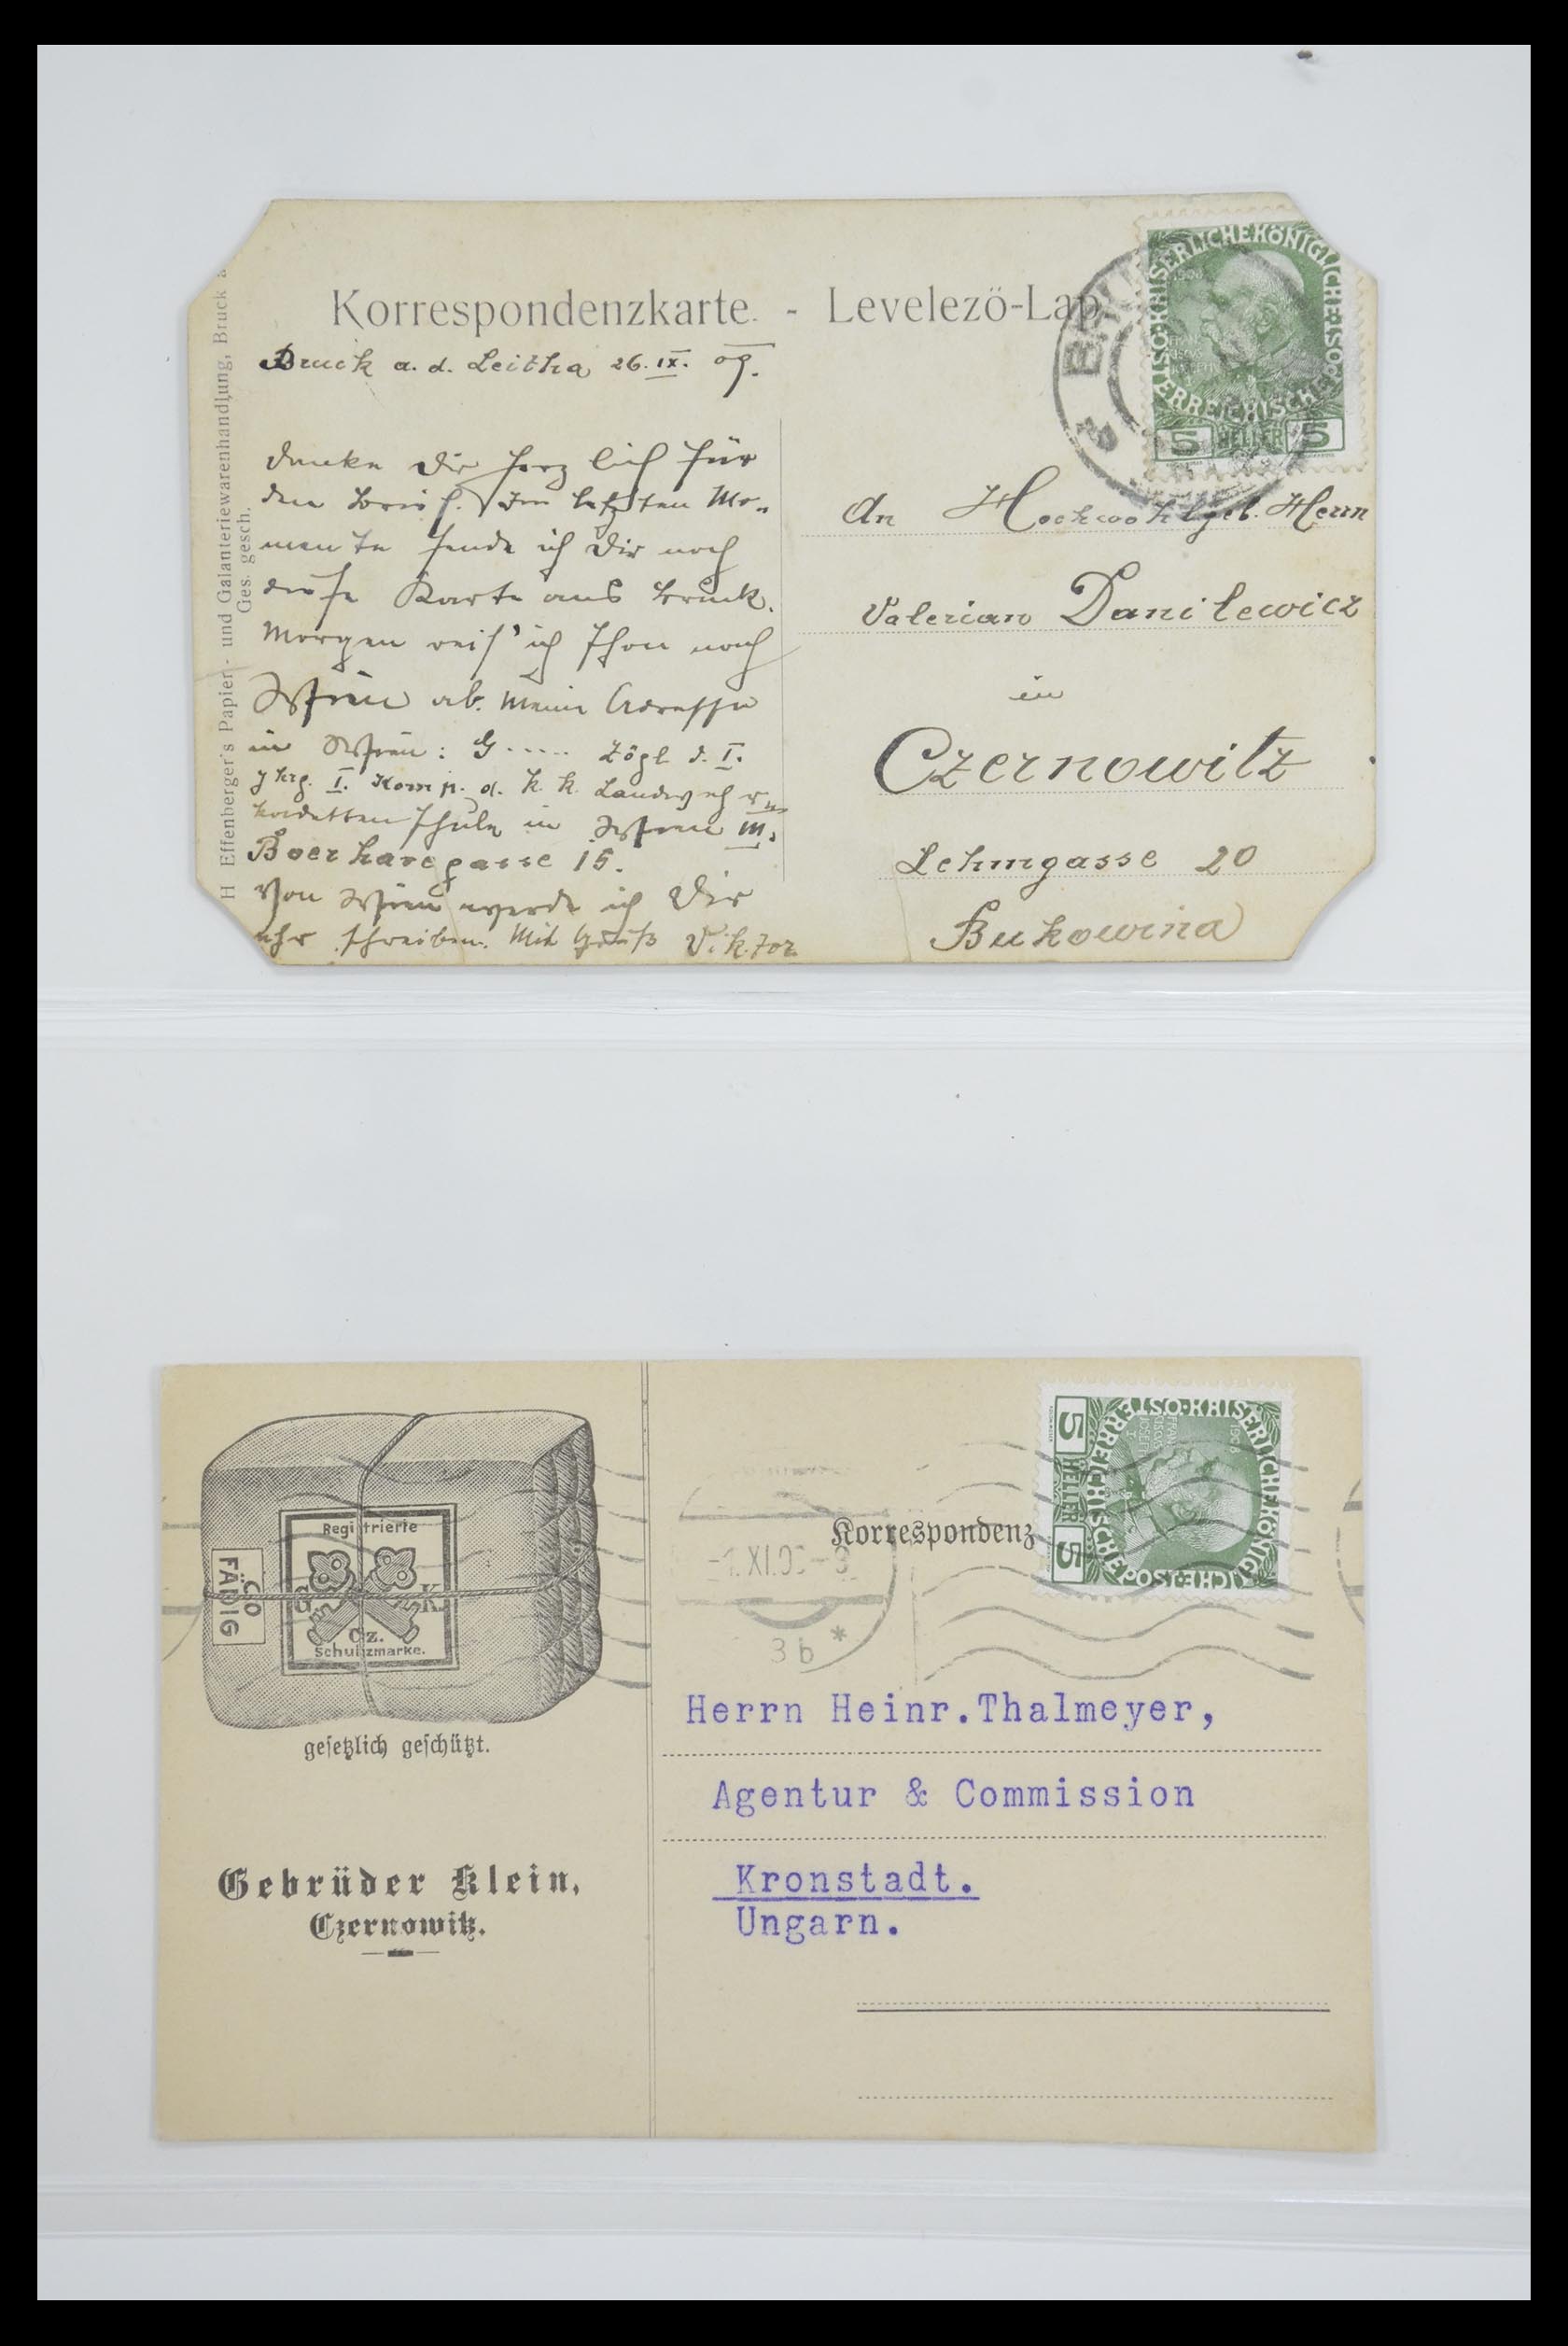 Korrespondenzkarte. - Levelezö-Lap
H Effenberger's Papier- und Galanteriewarenhandlung, Bruck a
Ges. gesch.
Bruck a. d. Leitha 26. IX. 09.
danke Dir herzlich für
den Brief. Im letzten Mo-
mente sende ich Dir noch
diese Karte aus Bruck.
Morgen reis' ich schon nach
Wien ab. Meine Adresse
in Wien: G..... Zögl. d. I.
Jhrg. I. Komp. d. k. k. Landwehr
kadettenschule in Wien III.
Boerhavegasse 15.
Von Wien werde ich Dir
schreiben. Mit Gruß Viktor
KAISERLICHE KÖNIGLICHE ÖSTERREICHISCHE
1908
5 HELLER 5
BRU
a
An Hochwohlgeb. Herrn
Valerian Danilewicz
in
Czernowitz
Lehmgasse 20
Bukowina
Registrierte
G K
Cz.
Schutzmarke.
CO
FÄDIG
gesetzlich geschützt.
Gebrüder Klein,
Czernowitz.
Korrespondenz
KAISERLICHE KÖNIGLICHE ÖSTERREICHISCHE
1908
5 HELLER 5
3b *
Herrn Heinr.Thalmeyer,
Agentur & Commission
Kronstadt.
Ungarn.